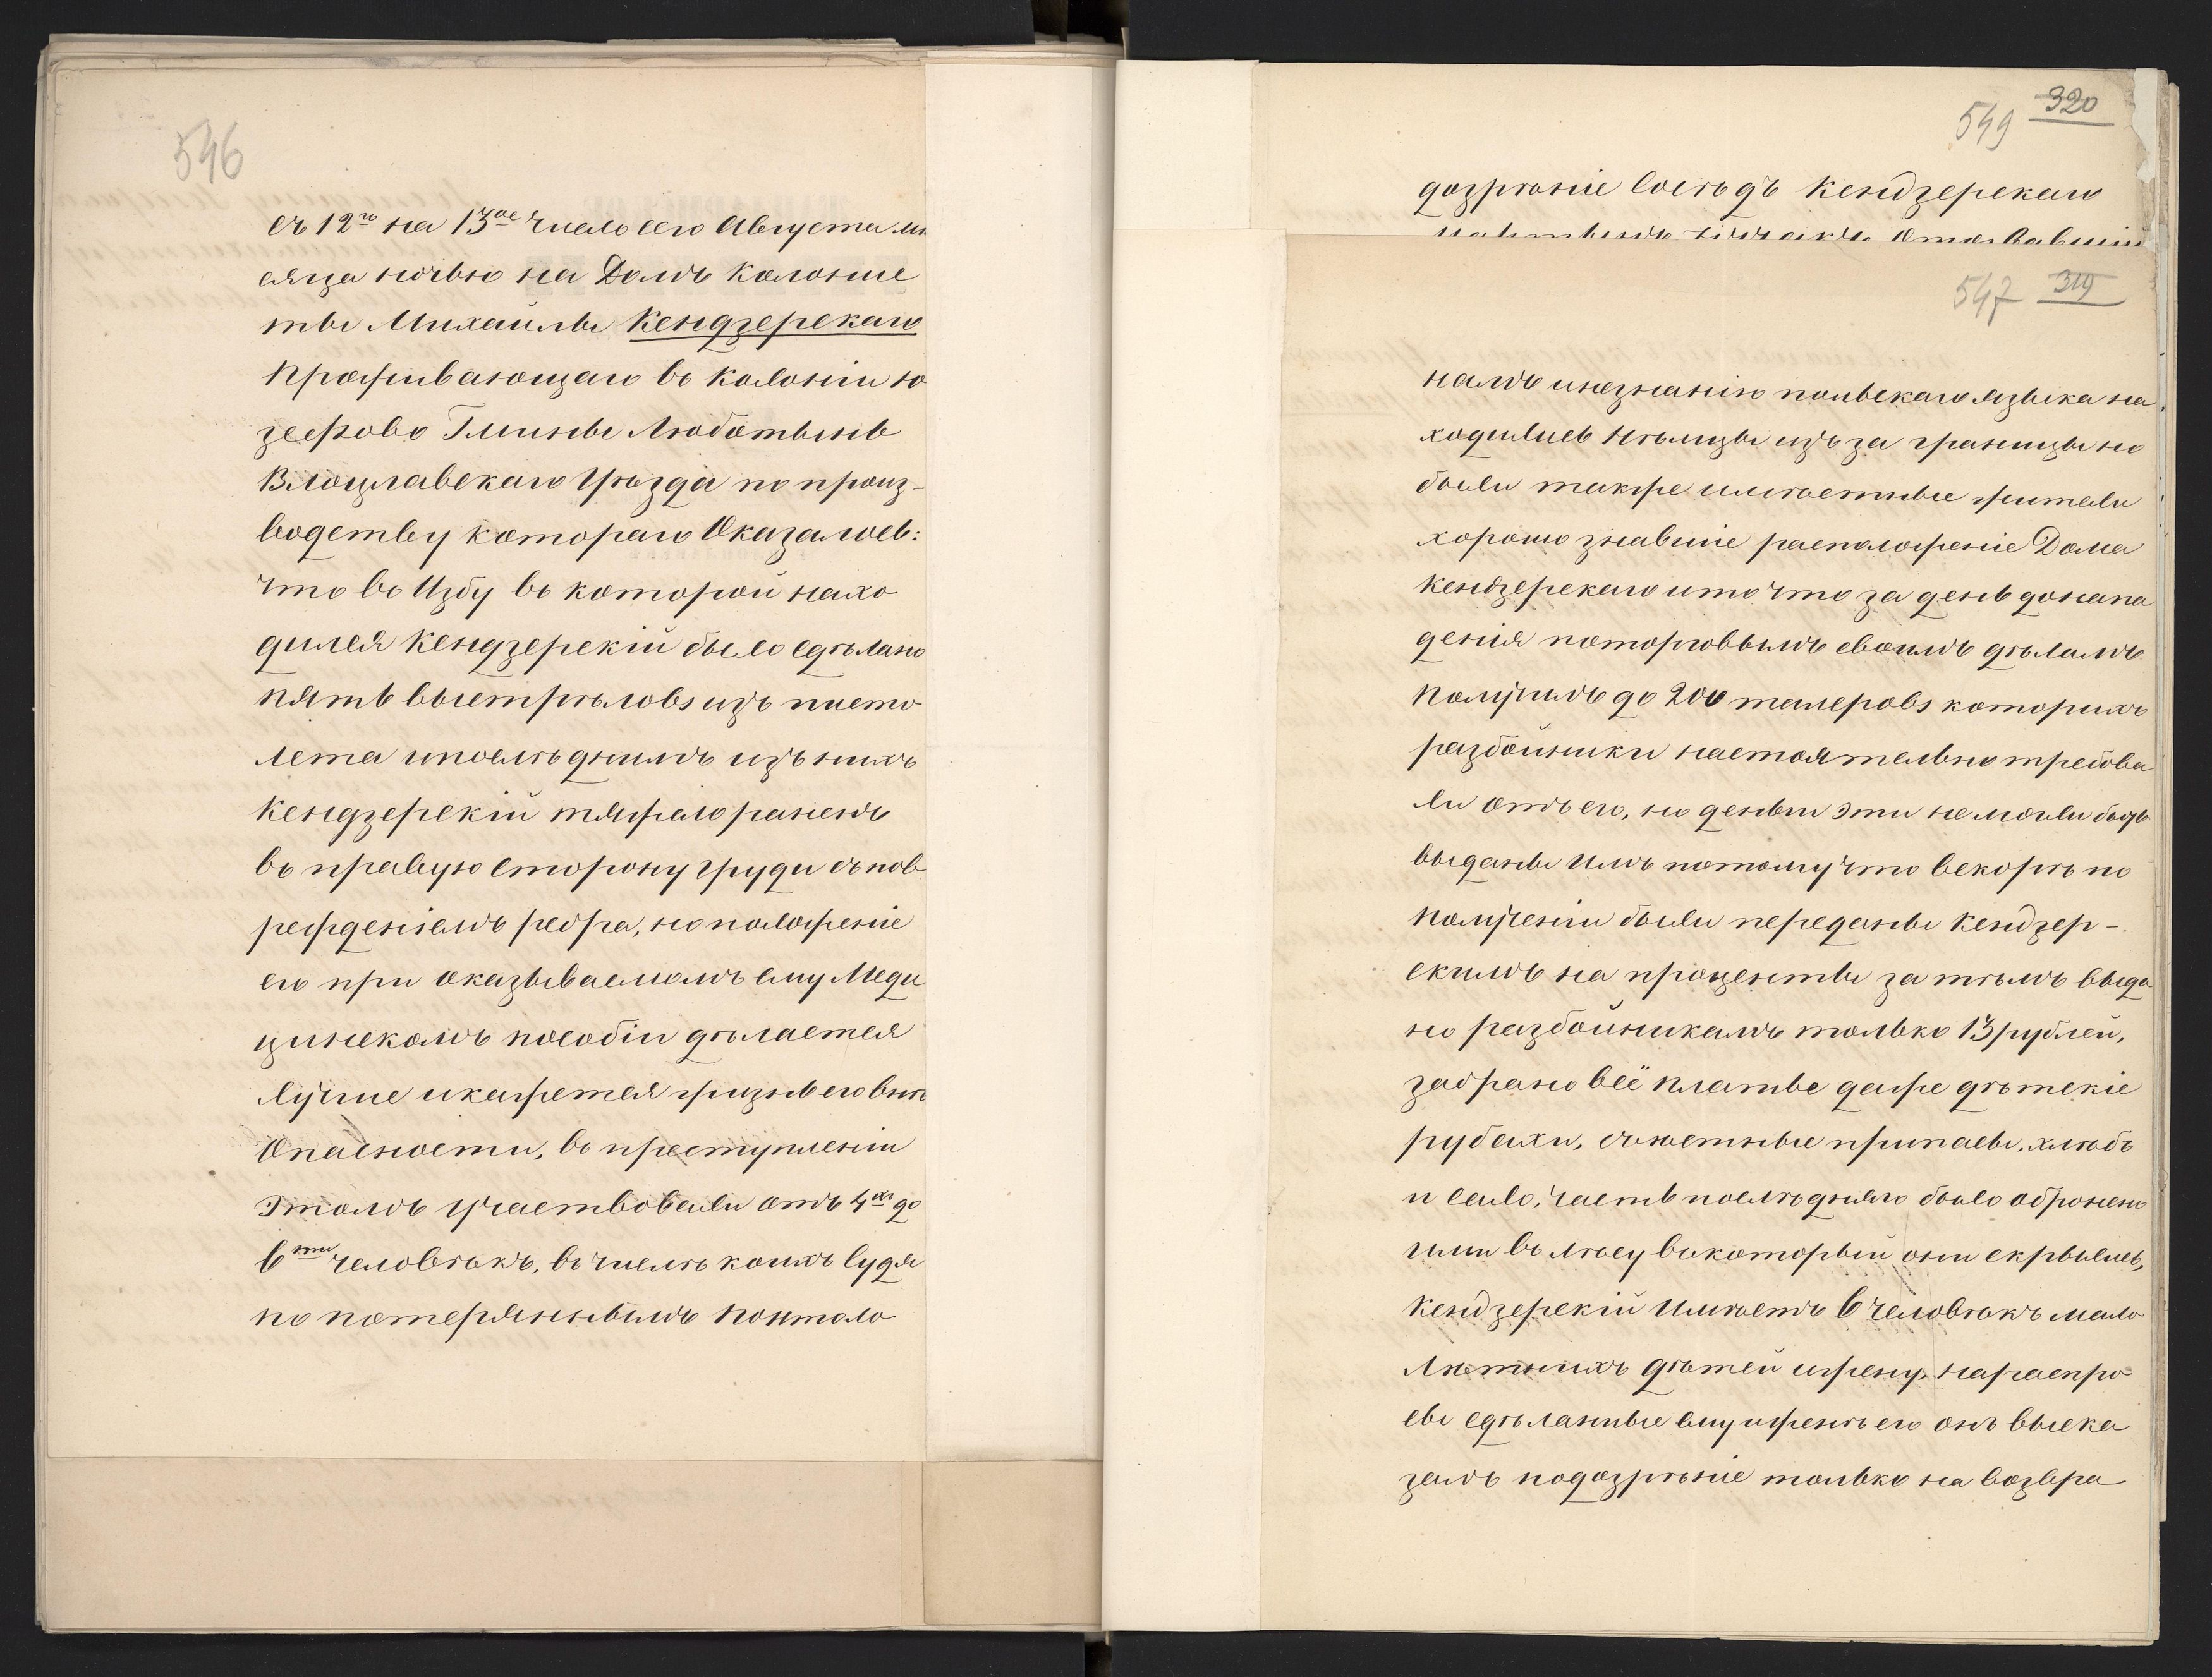 546
съ 12го на 13ое число сего Августа мѣ
сяца ночью на Домъ Колонис
ты Михаилы Кендзерскаго
проживающаго въ Колоніи Ю
зефово Гмины Люботынь
Влоцлавскаго Уѣзда по произ-
водству котораго Оказалось:
что въ Избу въ которой нахо
дился Кендзерскій было сдѣлано
пять выстрѣловъ изъ писто
лета и послѣднимъ изъ нихъ
Кендзерскій тяжело раненъ
въ правую сторону груди съ пов
режденіемъ ребра, но положеніе
его при оказываемомъ ему Меди
цинскомъ пособіи дѣлается
лучше и кажется жизнь его внѣ
Опасности, въ преступленіи
этомъ участвовали отъ 4хъ до
6ти человѣкъ, въ числѣ коихъ судя
по потеряннымъ понтало
320
549
дозрѣніе Сосѣдъ Кендзерскаго
547 319
намъ и незнанію польскаго языка на
ходились Нѣмцы изъ за границы но
были также и мѣстные жители
хорошо знавшіе расположеніе Дома
Кендзерскаго и то что за день до напа
денія по торговымъ своимъ дѣламъ
получилъ до 200 талеровъ которыхъ
разбойники настоятельно требова
ли отъ его, но деньги эти не могли быть
выданы Имъ потому что вскорѣ по
полученіи были переданы Кендзер-
скимъ на проценты за тѣмъ выда
но разбойникамъ только 13 рублей,
забрано всё платье даже дѣтскіе
рубахи, съѣстные припасы, хлѣбъ
и сало, часть послѣдняго было обронено
ими въ лѣсу въ который они скрылись,
Кендзерскій Имѣетъ 6 человѣкъ мало
лѣтнихъ дѣтей и жену, на распро
сы сдѣланные ему и женѣ его онъ выска
залъ подозрѣніе только на возвра